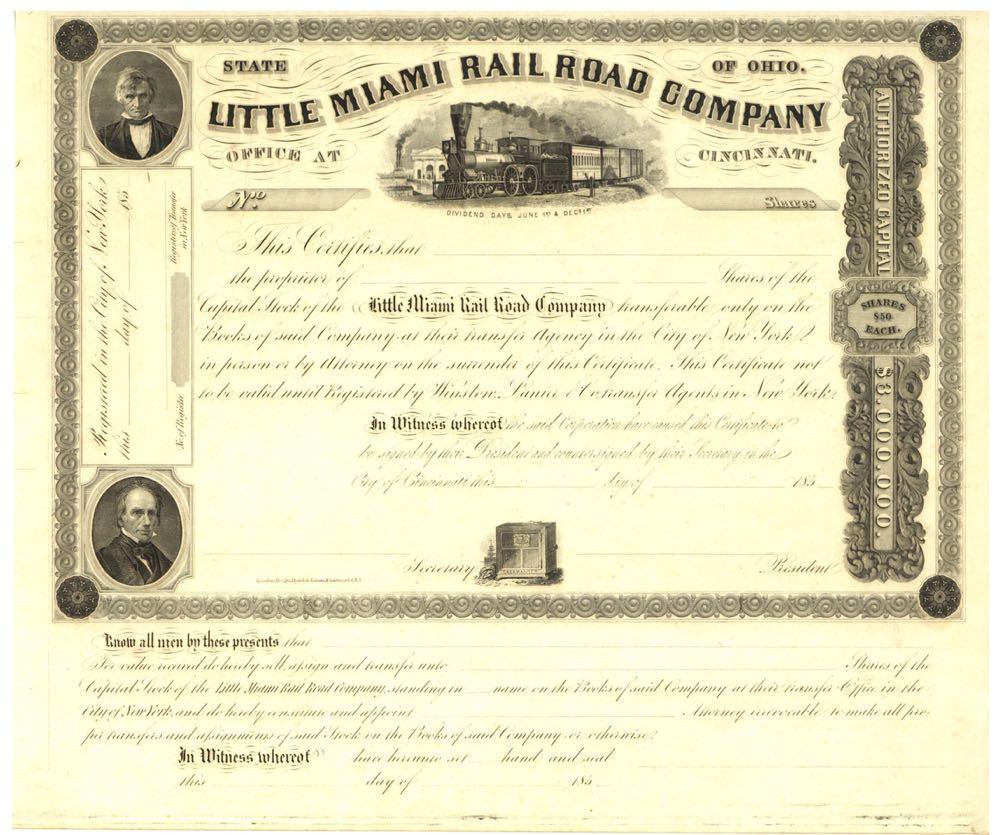 STATE OF OHIO.
LITTLE MIAMI RAIL ROAD COMPANY
OFFICE AT CINCINNATI.
No. Shares
DIVIDEND DAYS, JUNE 1ST & DECR 1ST
This Certifies, that
the proprietor of Shares of the
Capital Stock of the Little Miami Rail Road Company transferable only on the
Books of said Company at their transfer Agency in the City of New York
in person or by Attorney on the surrender of this Certificate. This Certificate not
to be valid until Registered by Winslow, Lanier & Co. transfer Agents in New York.
In Witness whereof the said Corporation have caused this Certificate to
be signed by their President and countersigned by their Secretary in the
City of Cincinnati this day of 185
Secretary President
Registered in the City of New York
this day of 185
Register of Transfer
in New York
No. of Register
AUTHORIZED CAPITAL
SHARES
$50
EACH.
$3,000,000.
Know all men by these presents that
For value received do hereby sell, assign and transfer unto Shares of the
Capital Stock of the Little Miami Rail Road Company, standing in name on the Books of said Company at their transfer Office in the
City of New York, and do hereby constitute and appoint Attorney irrevocable to make all pro-
per transfers and assignments of said Stock on the Books of said Company or otherwise.
In Witness whereof have hereunto set hand and seal
this day of 185